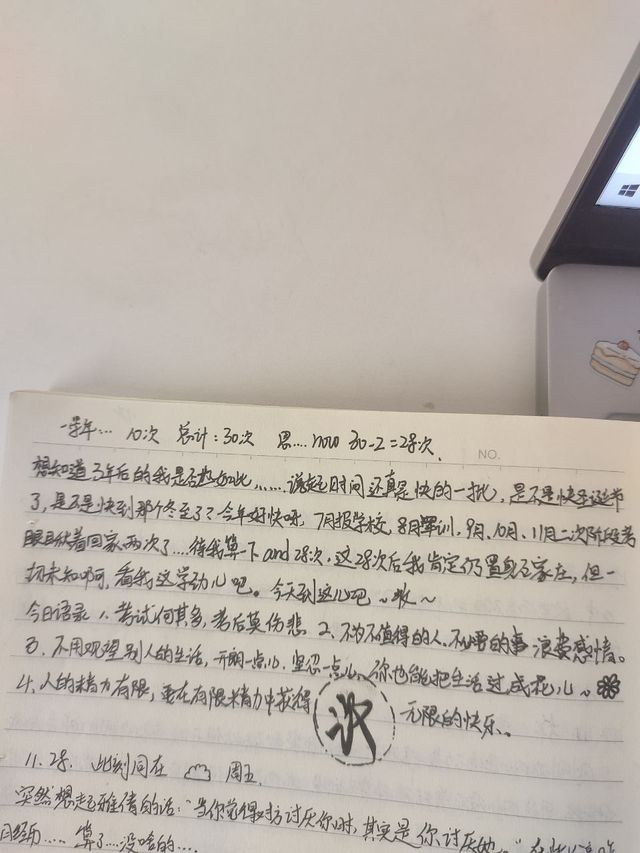 一学年… 10次 总计：30次 思…. now 30-2=28次.
NO.
想知道3年后的我是否如此…… 说起时间还真是快的一批，是不是快圣诞节
了，是不是快到那个冬至了？今年好快呀，7月报学校，8月军训，9月、10月、11月二次阶段考
眼目状着回家两次了…. 待我算一下 and 28次，这28次后我肯定仍置身石家庄，但一
切未知啊，看我这学劲儿吧。今天到这儿吧 ~ 收 ~
今日语录 1、考试何其多，考后莫伤悲 2、不为不值得的人、不必要的事 浪费感情。
3、不用观望别人的生活，开朗一点儿，坚忍一点儿，你也能把生活过成花儿~
4、人的精力有限，要在有限精力中获得 无限的快乐。
11.28. 此刻同在 周五.
突然想起雅倩的话："当你觉得对方讨厌你时，其实是你讨厌她。"
经历…. 算了…没啥的….